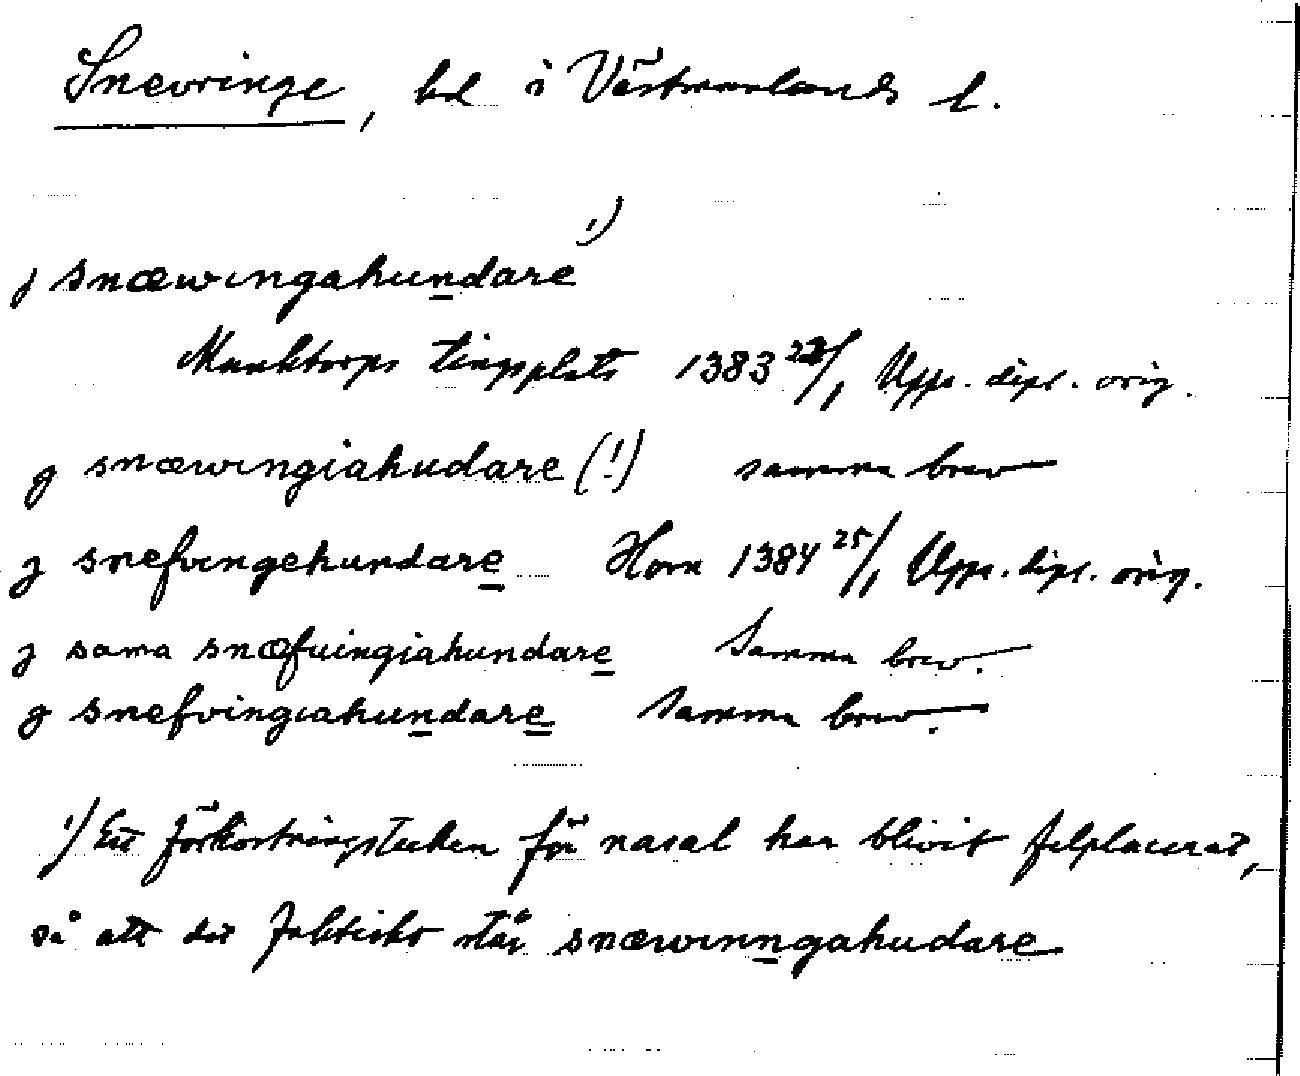 Snevringe, hd i Västmanlands l.
j snæwingahundare ¹)
Munktorps tingsplats 1383 23/1 Upps. dipl. orig.
j snæwingiahudare (!) samma brev
j snefvingehundare Horn 1384 25/1 Upps. dipl. orig.
j sama snæfuingiahundare Samma brev.
j snefvingiahundare Samma brev.
¹) Ett förkortningstecken för nasal har blivit felplacerat,
så att det faktiskt står snæwinngahudare